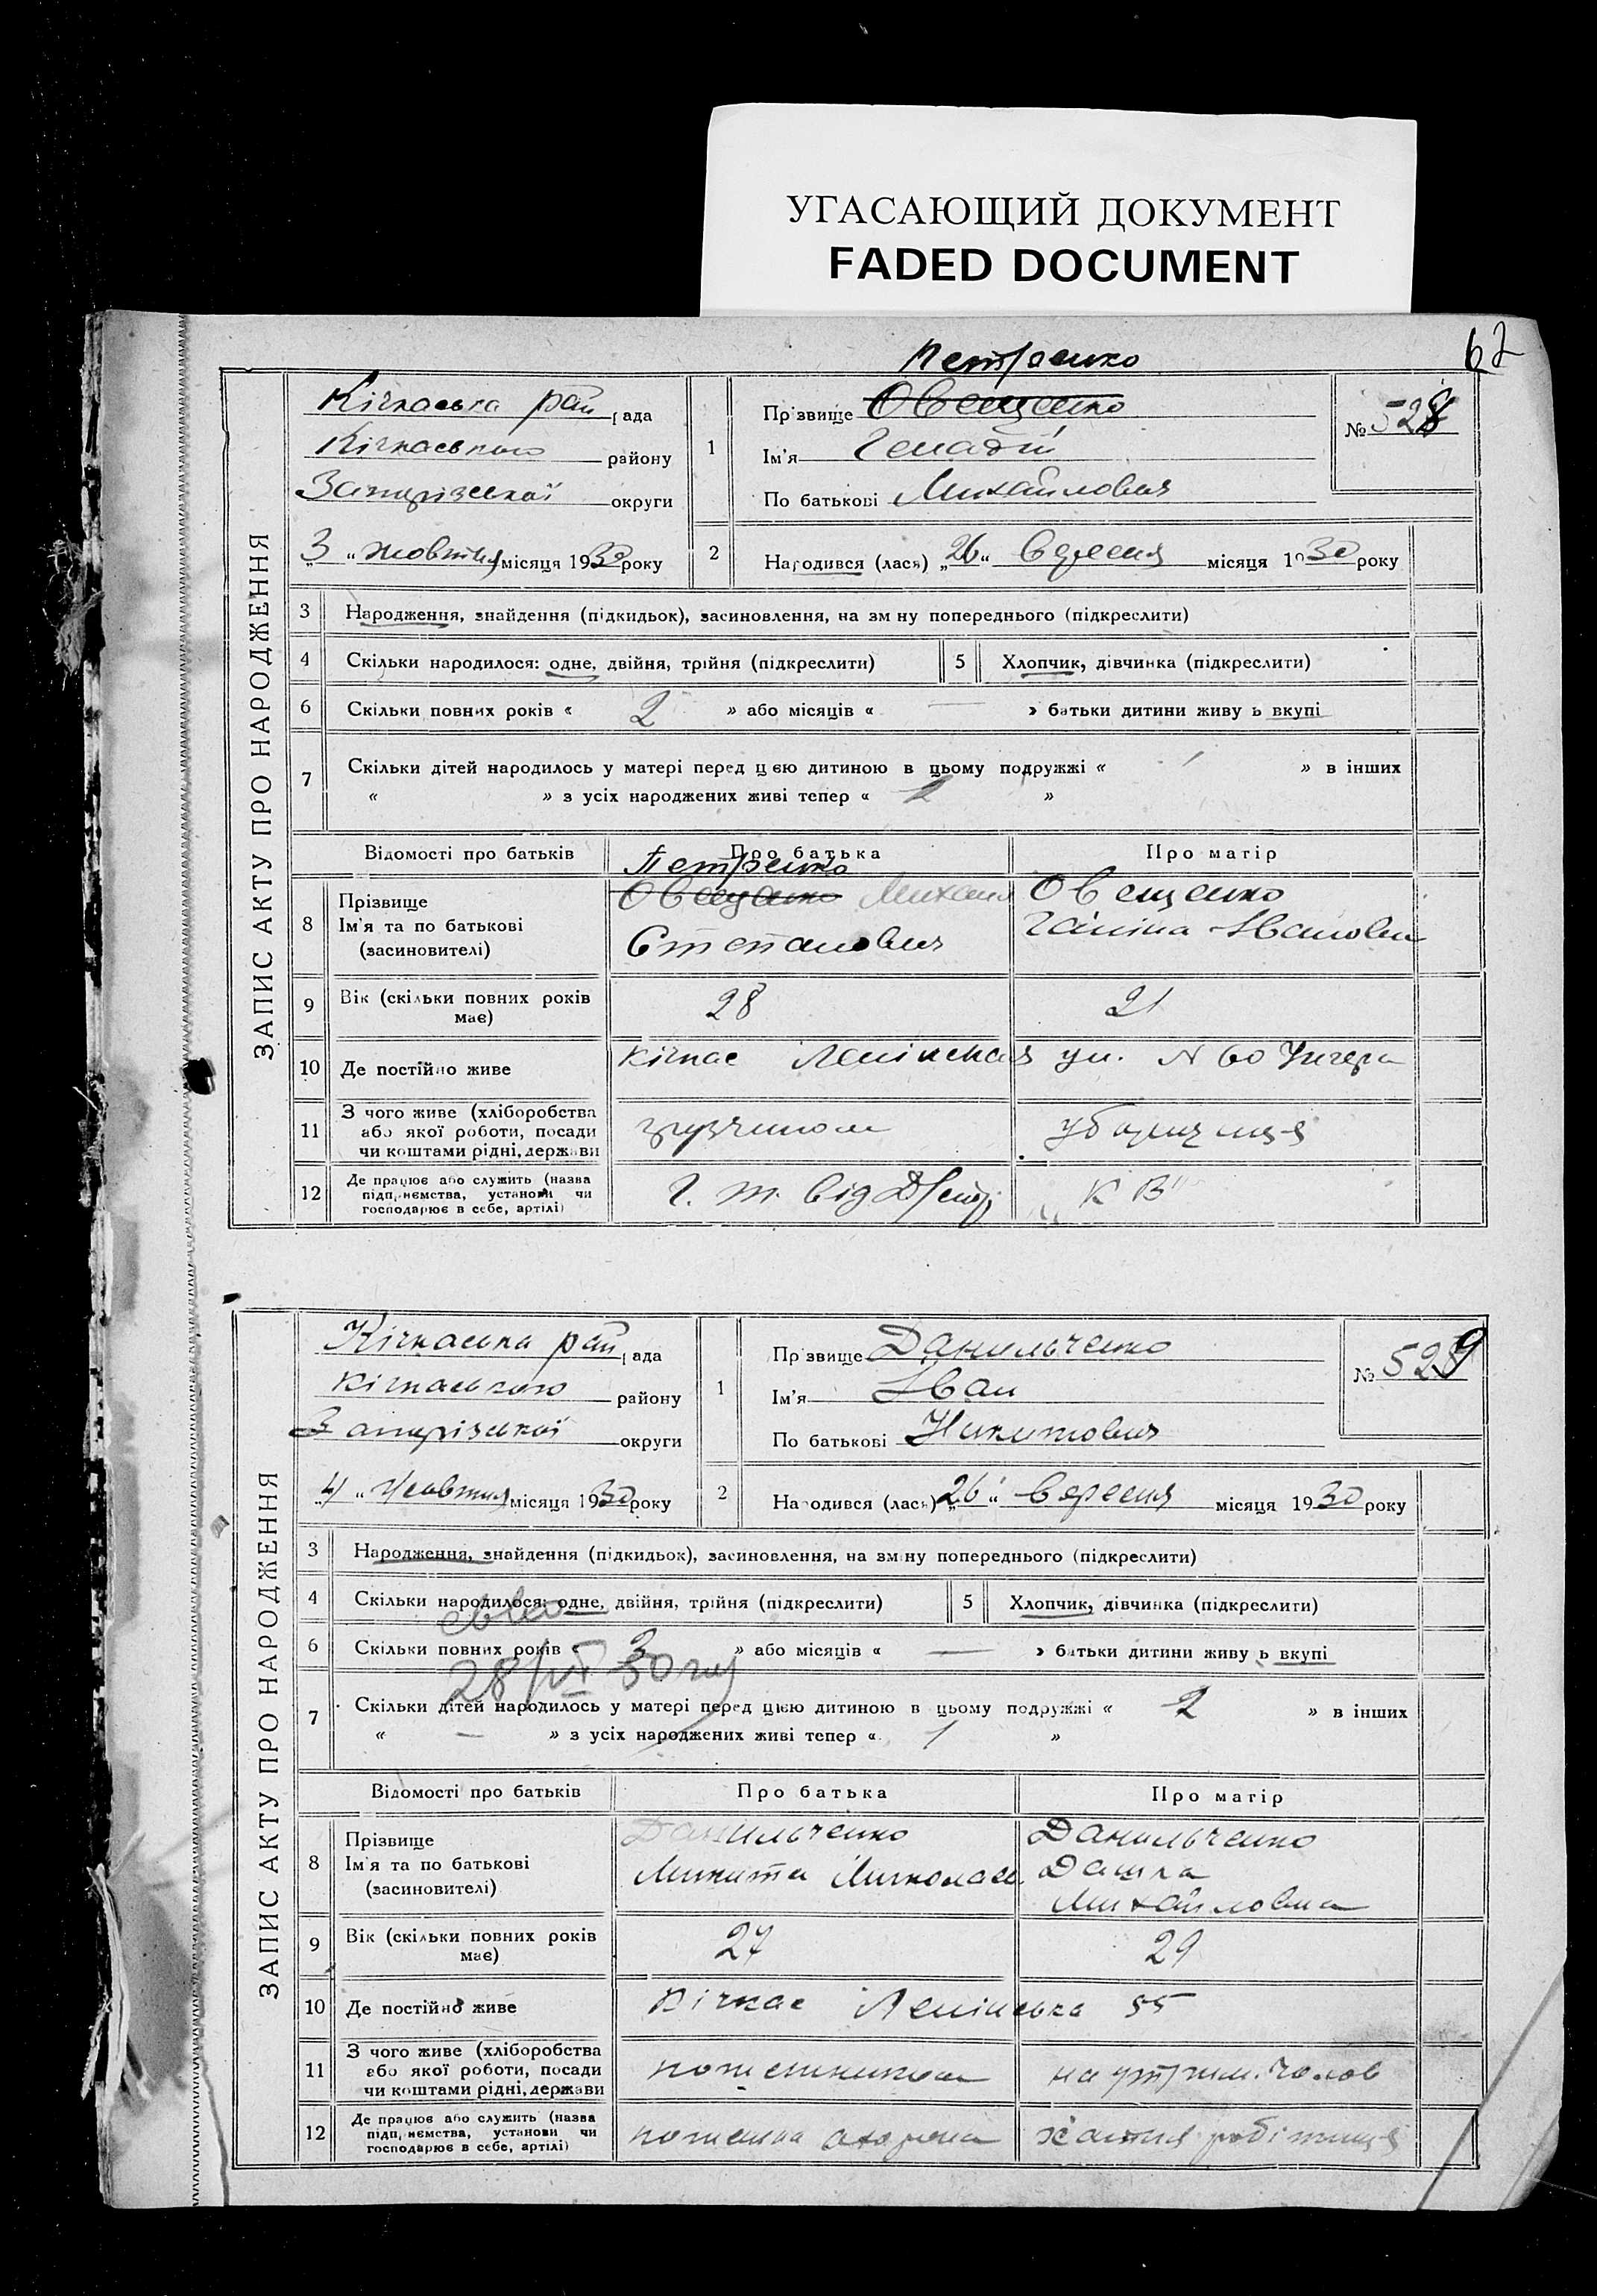 УГАСАЮЩИЙ ДОКУМЕНТ
FADED DOCUMENT
62
Петренко
ЗАПИС АКТУ ПРО НАРОДЖЕННЯ
Кічкаська рай рада
Кічкаського району
Запорізської округи
„3“ жовтня місяця 1930 року
1
Прізвище Овещенко
Ім'я Генадій
По батькові Михайлович
№ 528
2
Народився (лася) „26“ Вересня місяця 1930 року
3 Народження, знайдення (підкидьок), засиновлення, на зміну попереднього (підкреслити)
4 Скільки народилося: одне, двійня, трійня (підкреслити)
5 Хлопчик, дівчинка (підкреслити)
6 Скільки повних років « 2 » або місяців « — » батьки дитини живуть вкупі
7 Скільки дітей народилось у матері перед цією дитиною в цьому подружжі « » в інших
« » з усіх народжених живі тепер « »
Відомості про батьків Про батька Про матір
8 Прізвище
Ім'я та по батькові
(засиновителі)
Петренко
Овещенко Михаил
Степанович
Овещенко
Галіна Івановна
9 Вік (скільки повних років має) 28 21
10 Де постійно живе Кічкас Ленінская ул. N 60
11 З чого живе (хліборобства
або якої роботи, посади
чи коштами рідні, держави
грузчиком
уборщиця
12 Де працює або служить (назва
підприємства, установи чи
господарює в себе, артілі)
„К В"
ЗАПИС АКТУ ПРО НАРОДЖЕННЯ
Кічкаська рай рада
Кічкаського району
Запорізської округи
„4“ Жовтня місяця 1930 року
1
Прізвище Данильченко
Ім'я Іван
По батькові Никитович
№ 529
2
Народився (лася) „26“ Вересня місяця 1930 року
3 Народження, знайдення (підкидьок), засиновлення, на зміну попереднього (підкреслити)
4 Скільки народилося: одне, двійня, трійня (підкреслити)
5 Хлопчик, дівчинка (підкреслити)
6 Скільки повних років « 3 » або місяців « — » батьки дитини живуть вкупі
7 Скільки дітей народилось у матері перед цією дитиною в цьому подружжі « 2 » в інших
« — » з усіх народжених живі тепер « 1 »
Відомості про батьків Про батька Про матір
8 Прізвище
Ім'я та по батькові
(засиновителі)
Данильченко
Микита Миколаев.
Данильченко
Дашка
Михайловна
9 Вік (скільки повних років має) 27 29
10 Де постійно живе Кічкас Ленінська 55
11 З чого живе (хліборобства
або якої роботи, посади
чи коштами рідні, держави
на утрим. чолов
12 Де працює або служить (назва
підприємства, установи чи
господарює в себе, артілі)
пожежна охорона
хатня робітниця